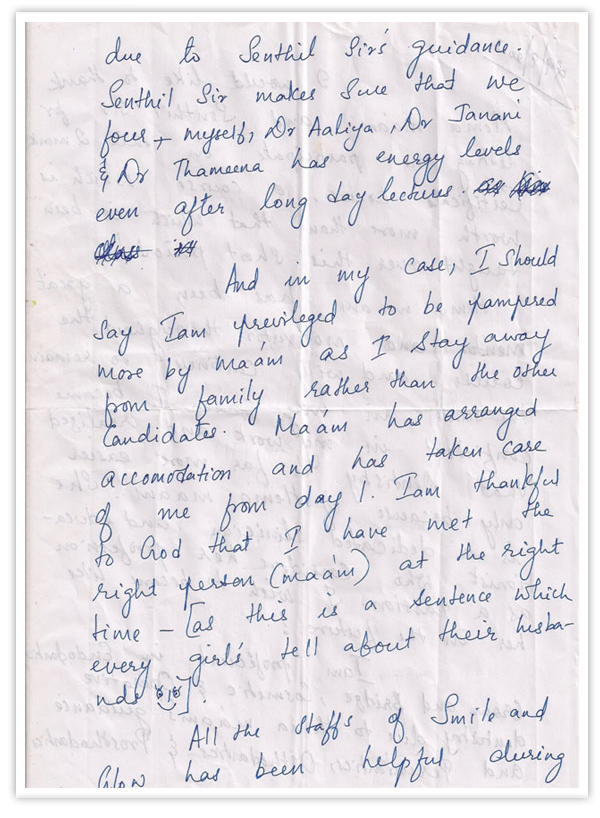 due to Senthil Sir's guidance.
Senthil Sir makes sure that we
four + myself, Dr Aaliya, Dr Janani
& Dr Thameena has energy levels
even after long day lectures.
And in my case, I should
say Iam previleged to be pampered
more by ma'am as I stay away
from family rather than the other
Candidates. Ma'am has arranged
accomodation and has taken care
of me from day 1. Iam thankful
to God that I have met the
right person (ma'am) at the right
time – [as this is a sentence which
every girl's tell about their husba-
nds ].
All the staffs of Smile and
Glow has been helpful during